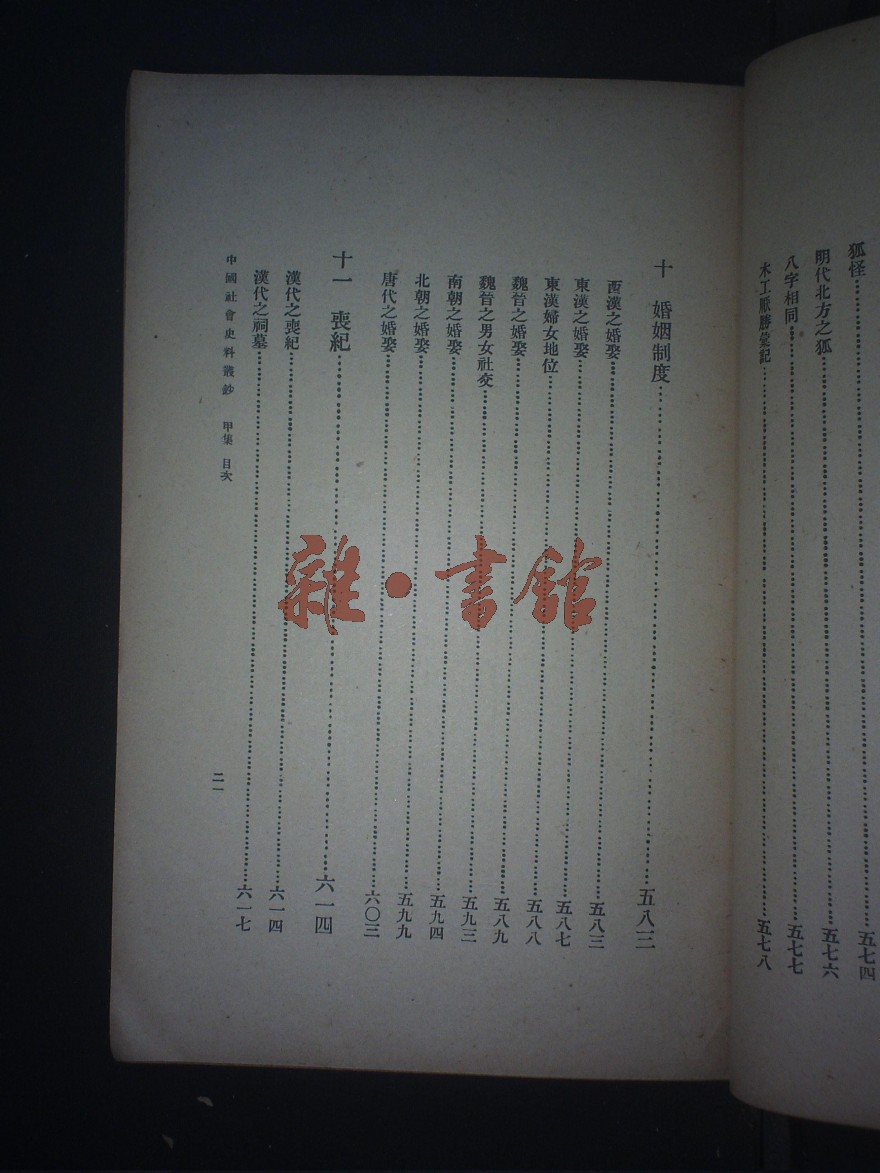 狐怪……五七四
明代北方之狐……五七六
八字相同……五七七
木工厭勝彙記……五七八
十 婚姻制度……五八三
西漢之婚娶……五八三
東漢之婚娶……五八七
東漢婦女地位……五八八
魏晉之婚娶……五八九
魏晉之男女社交……五九三
南朝之婚娶……五九四
北朝之婚娶……五九九
唐代之婚娶……六〇三
十一 喪紀……六一四
漢代之喪紀……六一四
漢代之祠墓……六一七
中國社會史料叢鈔 甲集 目次
二一
雜·書館